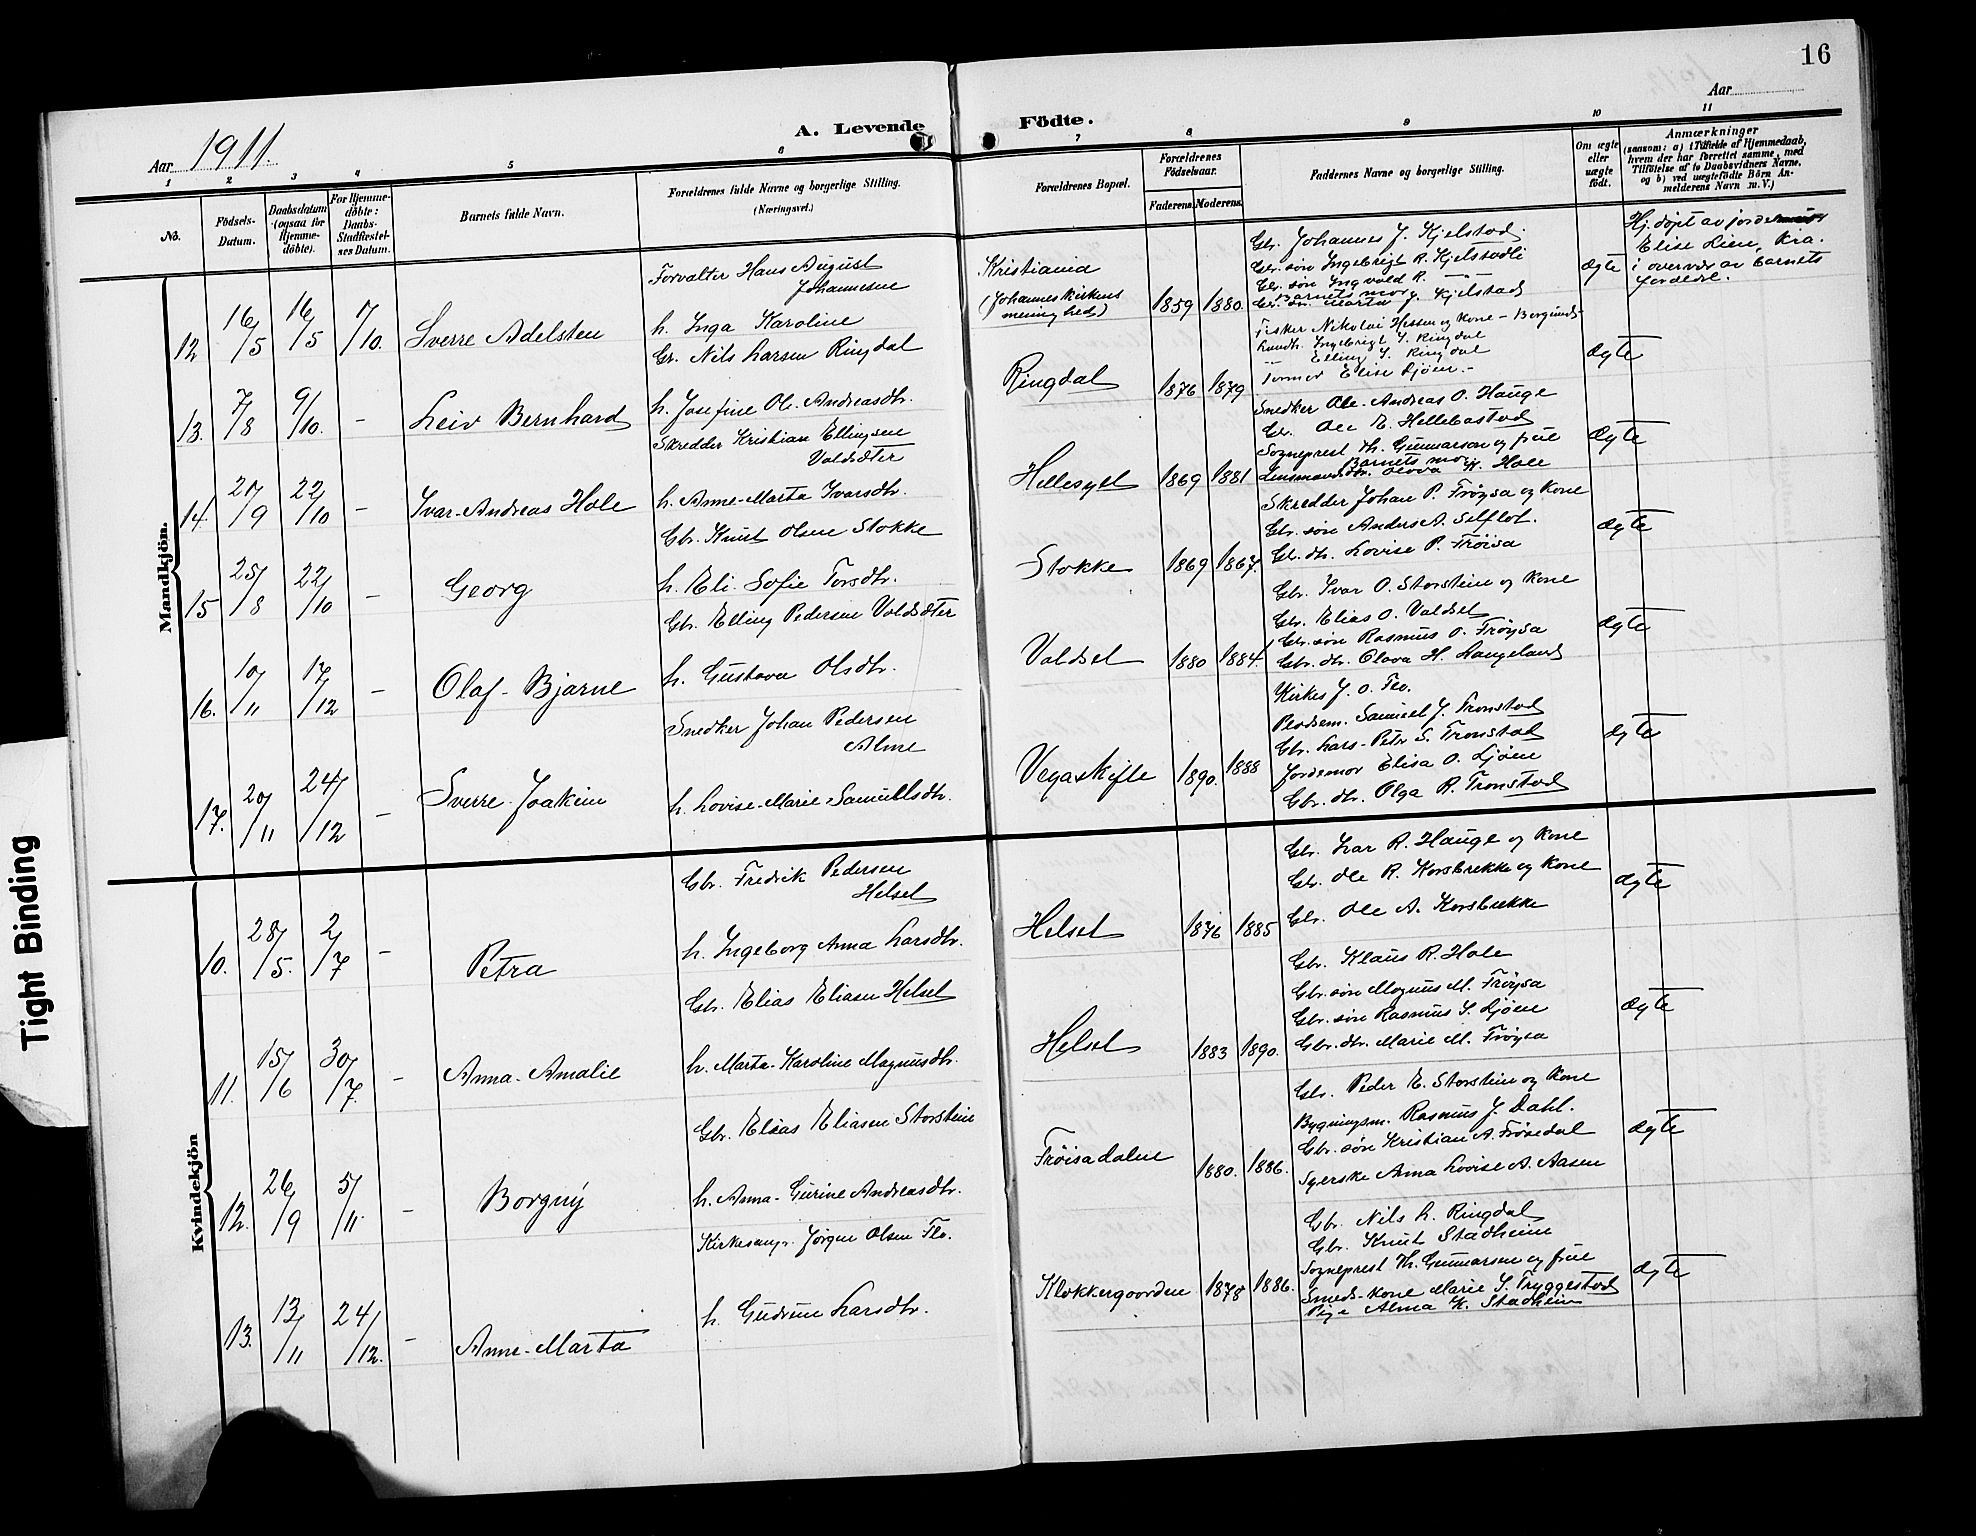 16
Aar 1911.
A. Levende Födte.
Aar
1 2 3 4 5 6 7 8 9 10 11
No.
Födsels-Datum.
Daabsdatum (ogsaa for Hjemme-döbte).
For Hjemme-döbte: Daabs-Stadfæstel-ses Datum.
Barnets fulde Navn.
Forældrenes fulde Navne og borgerlige Stilling.
(Næringsvei.)
Forældrenes Bopæl.
Forældrenes Födselsaar.
Faderens. Moderens.
Faddernes Navne og borgerlige Stilling.
Om ægte eller uægte födt.
Anmærkninger
(saasom: a) i Tilfælde af Hjemmedaab, hvem der har forrettet samme, med Tilföielse af to Daabsvidners Navne, og b) ved uægtefödte Börn Anmelderens Navn m. V.)
Mandkjön.
12 16/5 16/5 7/10. Sverre Adelsten
Forvalter Hans August
Johannesen
h. Inga Karoline
Kristiania
(Johanneskirkens
menighed)
1859 1880.
Gbr. Johannes J. Kjelstad.
Gbr. søn Ingebrigt R. Kjelstadli
Gbr. søn Ingvald R. —"—
Barnets mor
Gbr. dr. Marta J. Kjelstad
ægte
Hj. døpt av jordemor
Elise Lien, Kra.
i overvær av barnets
forældre.
13. 7/8 9/10. - Leiv Bernhard
Gr. Nils Larsen Ringdal
h. Josefine Ol. Andreasdtr.
Ringdal 1876 1879
Fisker Nikolai Hessen og Kone - Borgund
Landh. Ingebrigt S. Ringdal
Elling S. Ringdal
Elise Ljøen.-
ægte
14. 21/9 22/10 - Ivar-Andreas Hole
Skredder Kristian Ellingsen
Valdsæter
h. Anne-Marta Ivarsdtr.
Hellesylt 1869 1881
Snedker Ole-Andreas O. Hauge
Gbr. Ole E. Hellebostad
Sogneprest Th. Gunnarson og frue
Barnets mor
Lensmandsdtr. Olava K. Hole
ægte
15 25/8 22/10 - Georg
Gbr. Knut Olsen Stokke
h. Eli-Sofie Torsdtr.
Stokke 1869 1867.
Skredder Johan P. Frøysa og Kone
Gbr. søn Anders A. Selflot.
Gbr. dtr. Lovise P. Frøisa
ægte
16. 10/11 17/12 - Olaf-Bjarne
Gbr. Elling Pedersen Valdsæter
h. Gustava Olsdtr.
Valdsæt 1880 1884.
Gbr. Ivar O. Storstein og Kone
Gbr. Elias O. Valdsæt
Gbr. søn Rasmus O. Frøysa
Gbr. dtr. Olava H. Langeland
ægte
17. 20/11 24/12 - Sverre-Joakim
Snedker Johan Pedersen
Alme
h. Lovise-Marie Samuelsdtr.
Vegaskifte 1890. 1888
Kirkes J. O. Flo.
Samuel J. Tronstad
Gbr. Lars-Peter S. Tronstad
Jordemor Elisa O. Ljøen
Gbr. dtr. Olga R. Tronstad
ægte
Kvindekjön
10. 28/5. 2/7 - Petra
Gbr. Fredrik Pedersen
Helset
h. Ingeborg Anna Larsdtr.
Helset 1876 1885
Gbr. Ivar R. Hauge og Kone
Gbr. Ole R. Korsbrekke og Kone
Gbr. Ole A. Korsbrekke
ægte
11. 15/6 30/7. - Anna-Amalie
Gbr. Elias Eliasen Helset
h. Marta-Karoline Magnusdtr.
Helset 1883 1890.
Gbr. Klaus R. Hole
Gbr. søn Magnus M. Frøysa
Gbr. søn Rasmus S. Ljøen
Gbr. dtr. Marie M. Frøysa
ægte
12. 26/9 5/11. - Borgny
Gbr. Elias Eliasen Storstein
h. Anna-Gurine Andreasdtr.
Frøisadalen 1880. 1886.
Gbr. Peder E. Storstein og Kone
Bygningsm. Rasmus J. Dahl.
Gbr. søn Kristian A. Frøsedal
Syerske Anna Lovise A. Aasen
ægte
13. 13/11 24/12. - Anne-Marta
Kirkesanger Jørgen Olsen Flo.
h. Gudrun Larsdtr.
Klokkergaarden 1878 1886.
Gbr. Nils L. Ringdal
Gbr. Knut Stadheim
Sogneprest Th. Gunnarson og frue
Smeds-kone Marie S. Tryggestad
Pige Alma K. Stadheim
ægte
Tight Binding